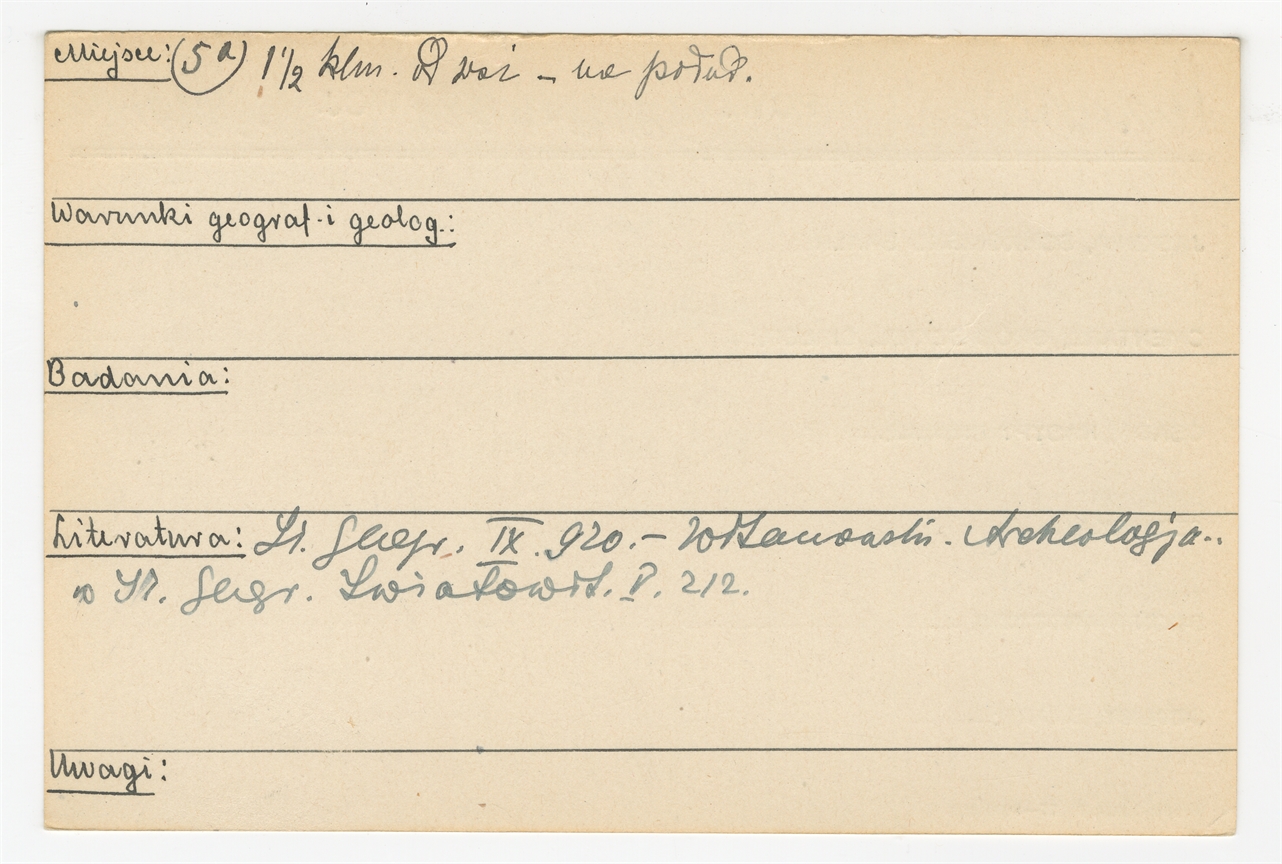 Miejsce: (5a) 1½ klm. od wsi – na połud.
Warunki geograf. i geolog.:
Badania:
Literatura: Sł. Geogr. IX. 920. – Witanowski. Archeologja..
w Sł. Geogr. Światowit. V. 212.
Uwagi: